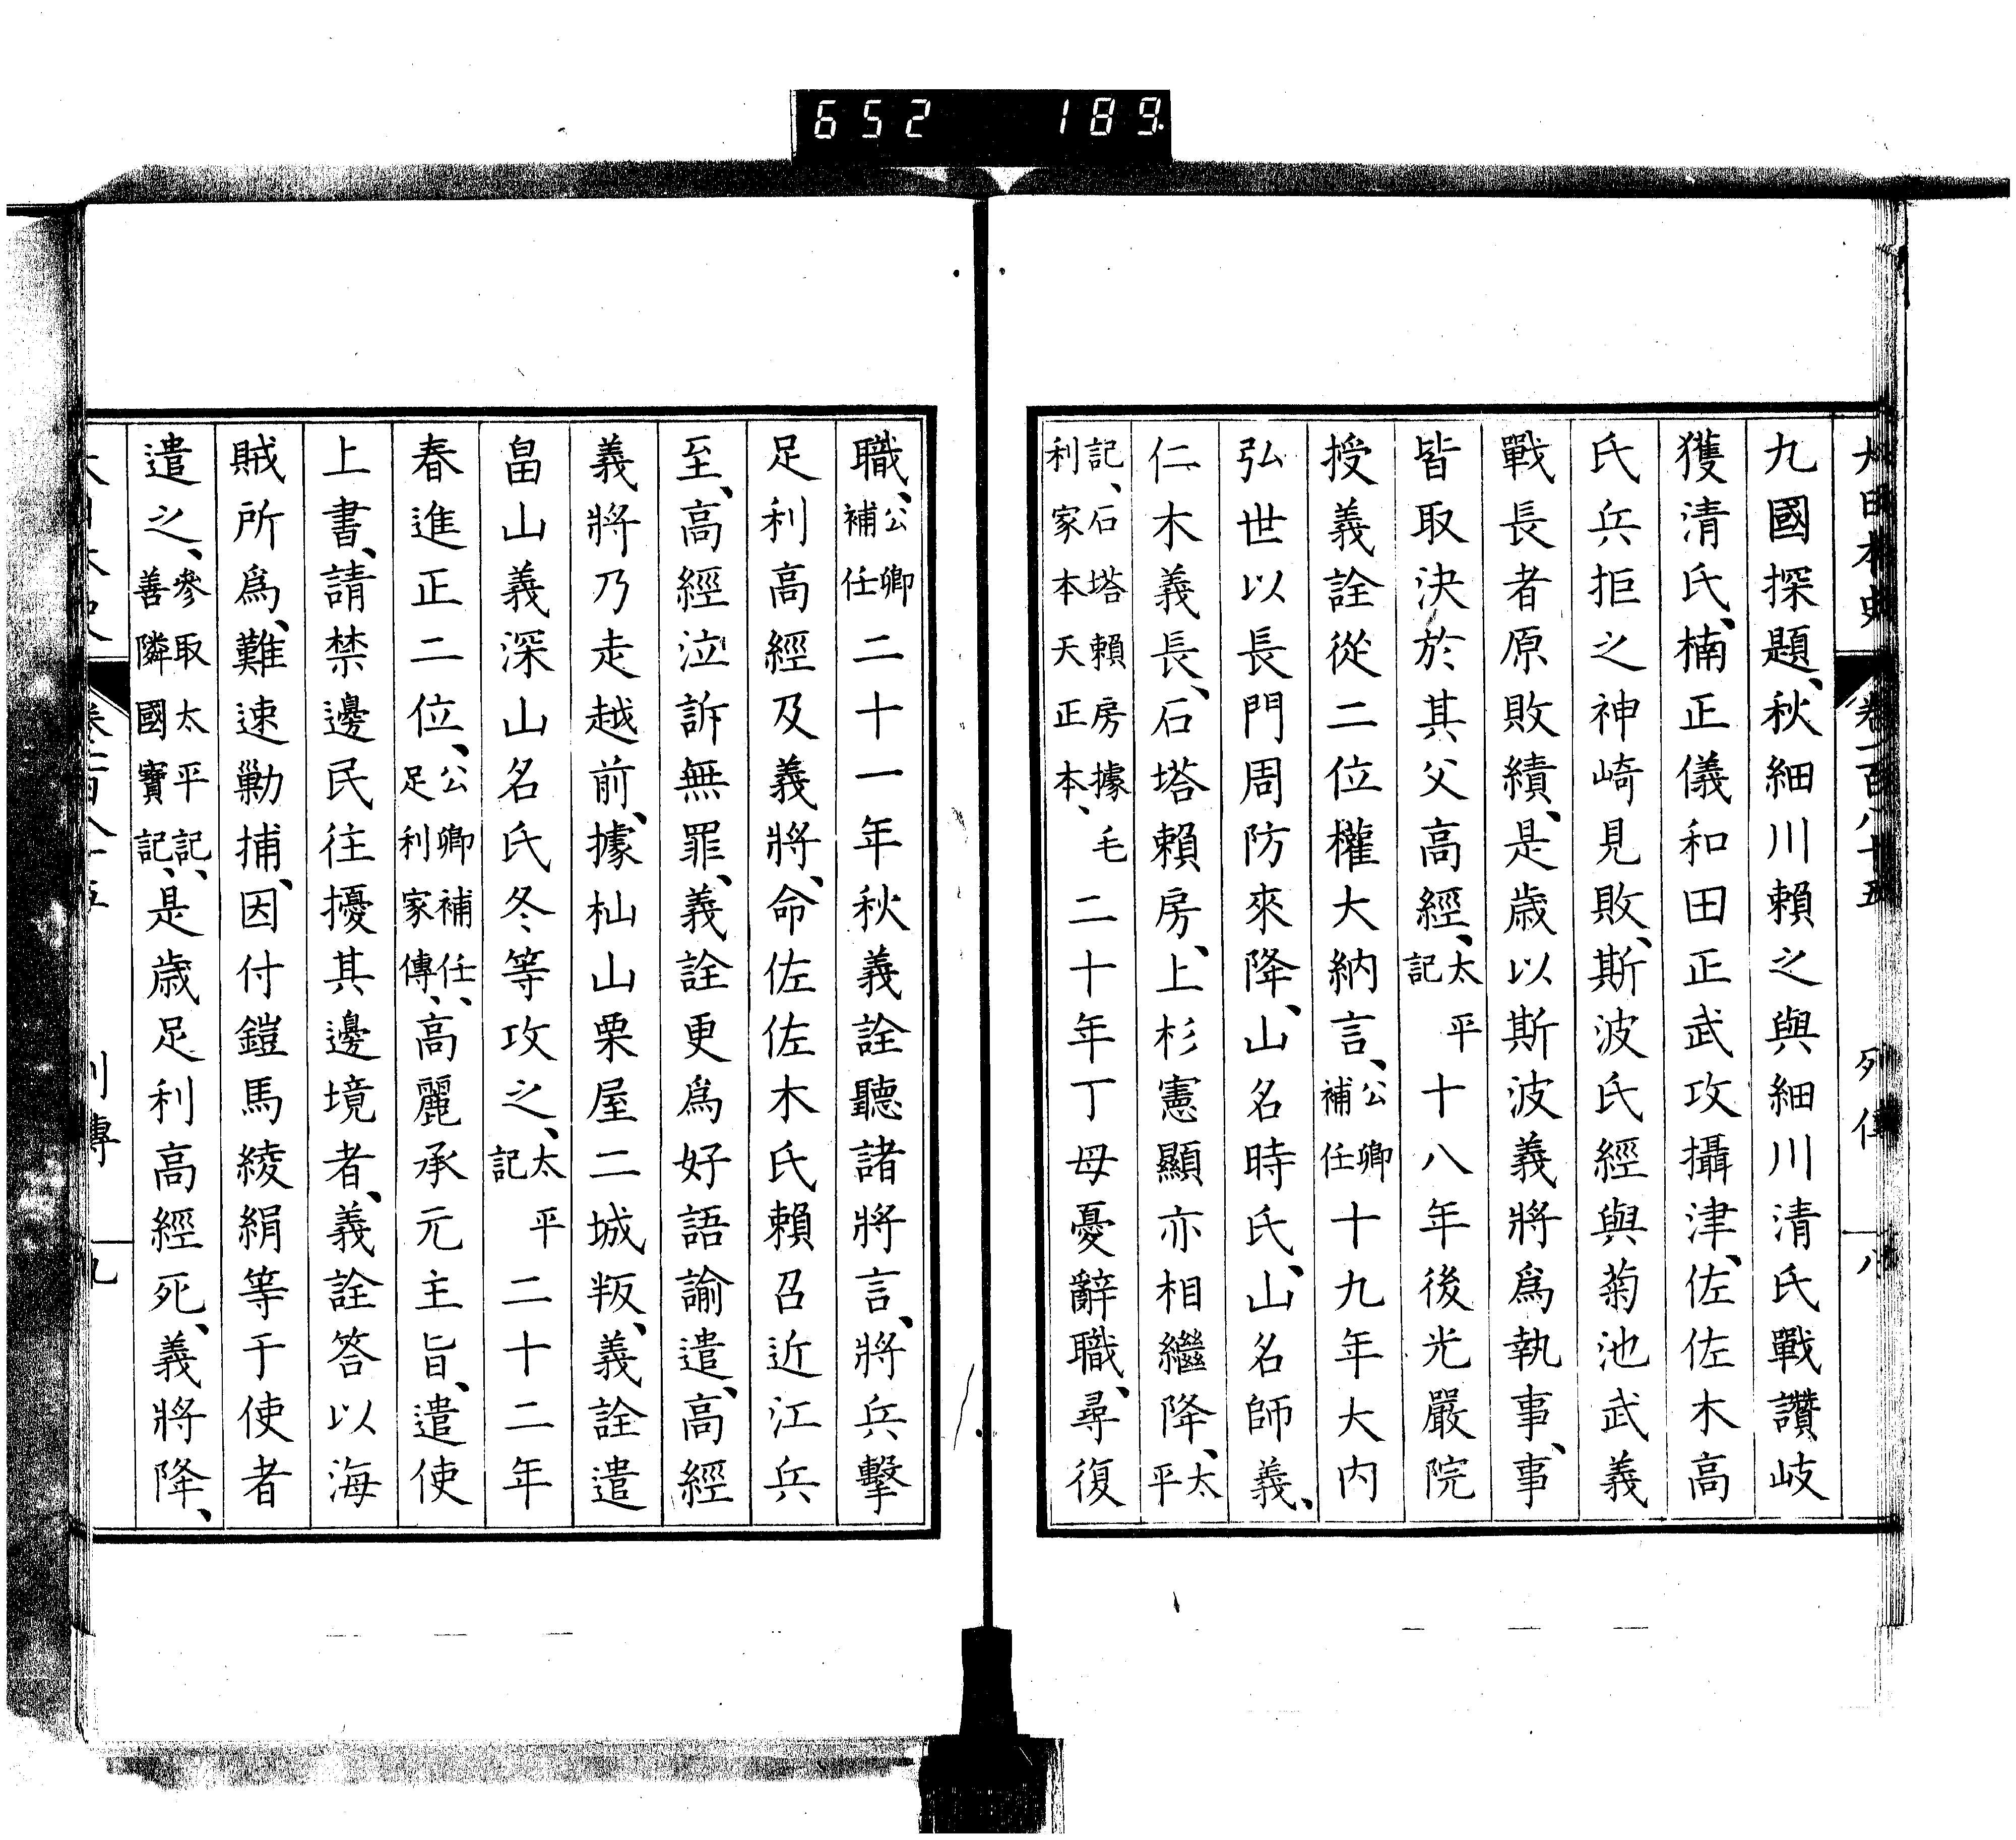 652 189
大日本史 卷一百八十五 列傳 一八
九國探題、秋細川賴之與細川清氏戰讚岐
獲清氏、楠正儀和田正武攻攝津、佐佐木高
氏兵拒之神崎見敗、斯波氏經與菊池武義
戰長者原敗績、是歲以斯波義將爲執事、事
皆取決於其父高經、太平記十八年後光嚴院
授義詮從二位權大納言、公卿補任十九年大内
弘世以長門周防來降、山名時氏、山名師義、
仁木義長、石塔賴房、上杉憲顯亦相繼降、太平
記、石塔賴房據毛利家本天正本、二十年丁母憂辭職、尋復
職、公卿補任二十一年秋義詮聽諸將言、將兵擊
足利高經及義將、命佐佐木氏賴召近江兵
至、高經泣訴無罪、義詮更爲好語諭遣、高經
義將乃走越前、據杣山栗屋二城叛、義詮遣
畠山義深山名氏冬等攻之、太平記二十二年
春進正二位、公卿補任、足利家傳、高麗承元主旨、遣使
上書、請禁邊民往擾其邊境者、義詮答以海
賊所爲、難速勦捕、因付鎧馬綾絹等于使者
遣之、參取太平記、善隣國寶記、是歲足利高經死、義將降、
大日本史 卷一百八十五 列傳 九